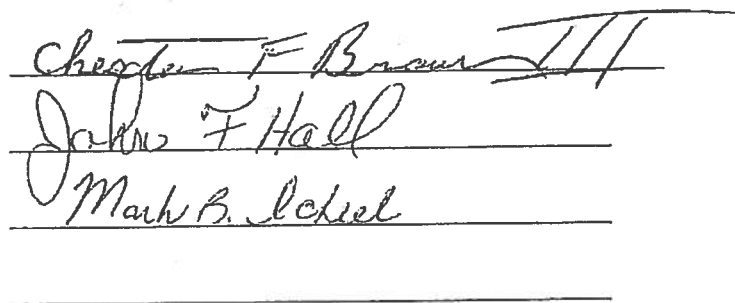 Chester F Brown III
John F Hall
Mark B.